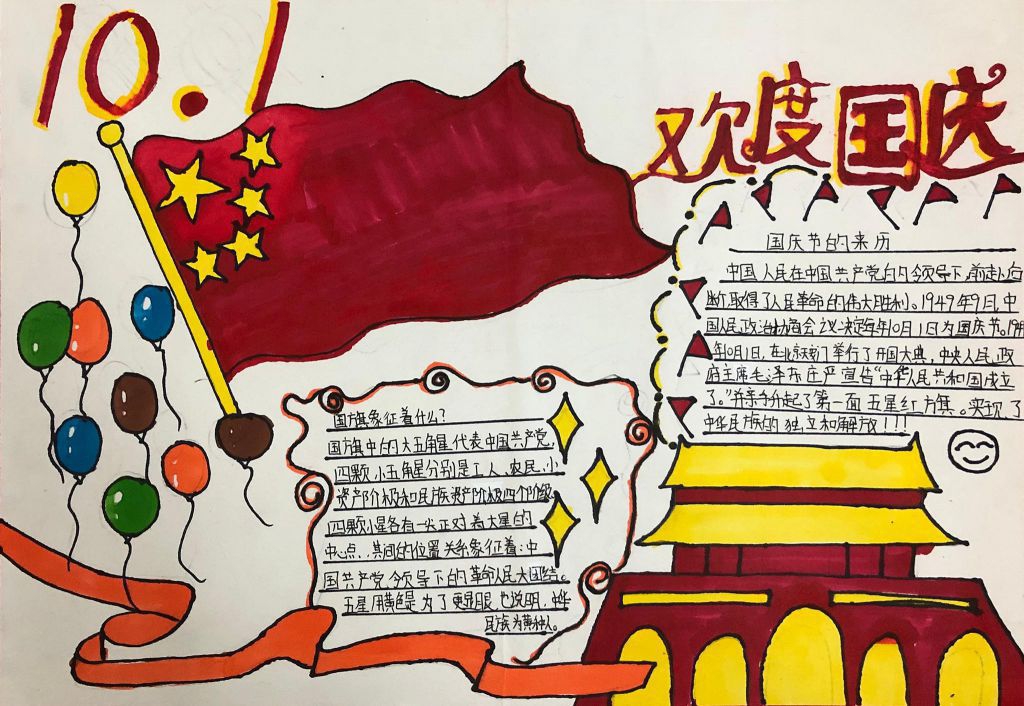 10.1
欢度国庆
国庆节的来历
中国人民在中国共产党的领导下,前赴后
断,取得了人民革命的伟大胜利。1949年9月,中
国人民政治协商会议决定每年10月1日为国庆节。1949
年10月1日,在北京天安门举行了开国大典,中央人民政
府主席毛泽东庄严宣告“中华人民共和国成立
了。”并亲手升起了第一面五星红旗。实现了
中华民族的独立和解放!!!
国旗象征着什么?
国旗中的大五角星代表中国共产党,
四颗小五角星分别是工人、农民、小
资产阶级和民族资产阶级四个阶级
四颗小星各有一尖正对着大星的
中心点,其间的位置关系象征着:中
国共产党领导下的革命人民大团结。
五星用黄色是为了更显眼也说明,中华
民族为黄种人。